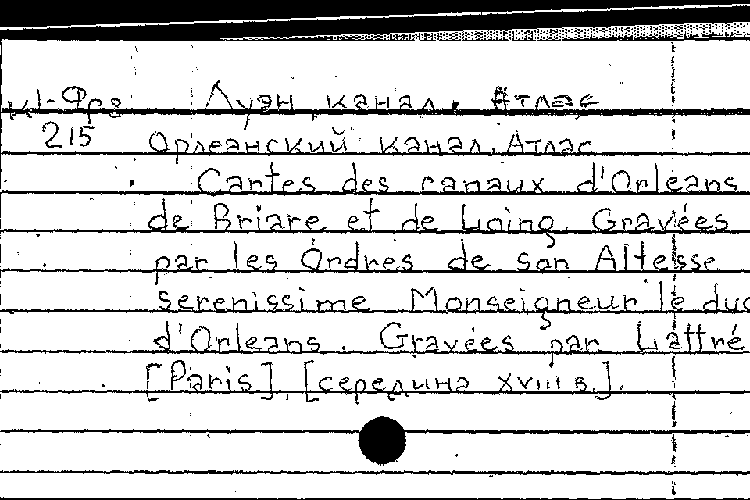 К1-Фра Луэн канал. Атлас
215 Орлеанский канал. Атлас
Cartes des canaux d'Orleans
de Briare et de Loing. Gravées
par les Ordres de son Altesse
serenissime Monseigneur le duc
d'Orleans. Gravées par Lattré
[Paris]. [середина XVIII в.].